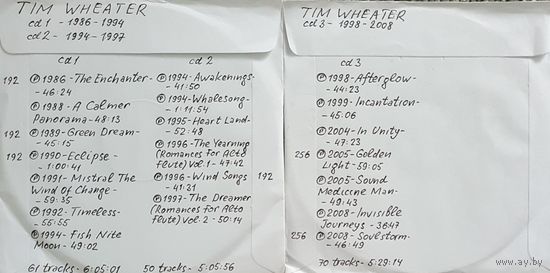 TIM WHEATER
cd 1 - 1986-1994
cd 2 - 1994-1997
cd 1
192 ℗ 1986 - The Enchanter -
- 46:24
℗ 1988 - A Calmer
Panorama - 48:13
192 ℗ 1989 - Green Dream -
- 45:15
192 ℗ 1990 - Eclipse -
- 1:00:41
℗ 1991 - Mistral The
Wind Of Change -
- 59:35
℗ 1992 - Timeless -
- 55:55
℗ 1994 - Fish Nite
Moon - 49:02
61 tracks - 6:05:01
cd 2
℗ 1994 - Awakenings -
- 41:50
℗ 1994 - Whalesong -
- 1:11:54
℗ 1995 - Heart Land -
- 52:48
℗ 1996 - The Yearning
(Romances For Alto
Flute) Vol. 1 - 47:42
℗ 1996 - Wind Songs 192
- 41:31
℗ 1997 - The Dreamer
(Romances For Alto
Flute) Vol. 2 - 50:14
50 tracks - 5:05:56
TIM WHEATER
cd 3 - 1998-2008
cd 3
℗ 1998 - Afterglow -
- 44:23
℗ 1999 - Incantation -
- 45:06
℗ 2004 - In Unity -
- 47:23
256 ℗ 2005 - Golden
Light - 59:05
℗ 2005 - Sound
Medicine Man -
- 49:43
℗ 2008 - Invisible
Journeys - 36:47
256 ℗ 2008 - Soulstorm -
- 46:49
70 tracks - 5:29:14
www.ay.by